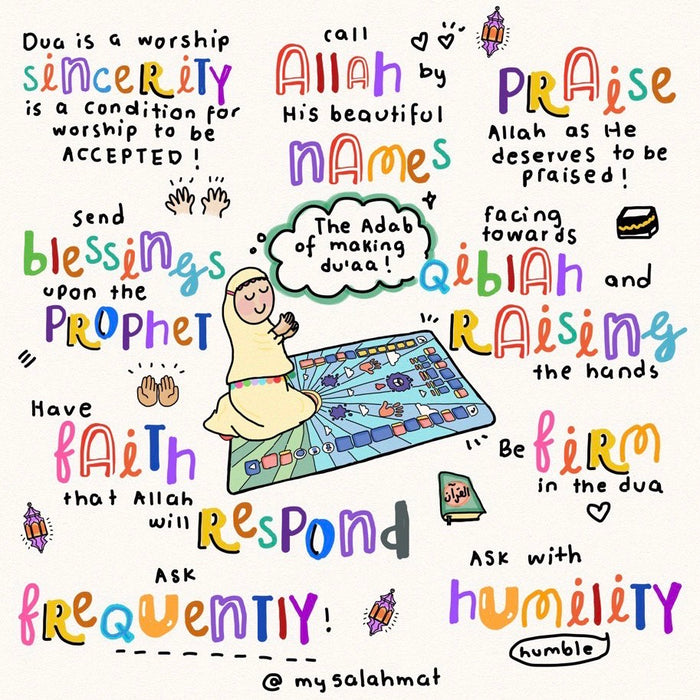 Dua is a worship
sincerity
is a condition for
worship to be
ACCEPTED!
call
Allah by
His beautiful
names
PRAise
Allah as He
deserves to be
praised!
send
blessings
upon the
PROPheT
The Adab
of making
du'aa!
facing
towards
Qiblah and
RAising
the hands
Have
fAiTh
that Allah
will Respond
Be fiRm
in the dua
القرآن
ASK
fReQuenTly!
ASK with
humiliTY
humble
@ mysalahmat